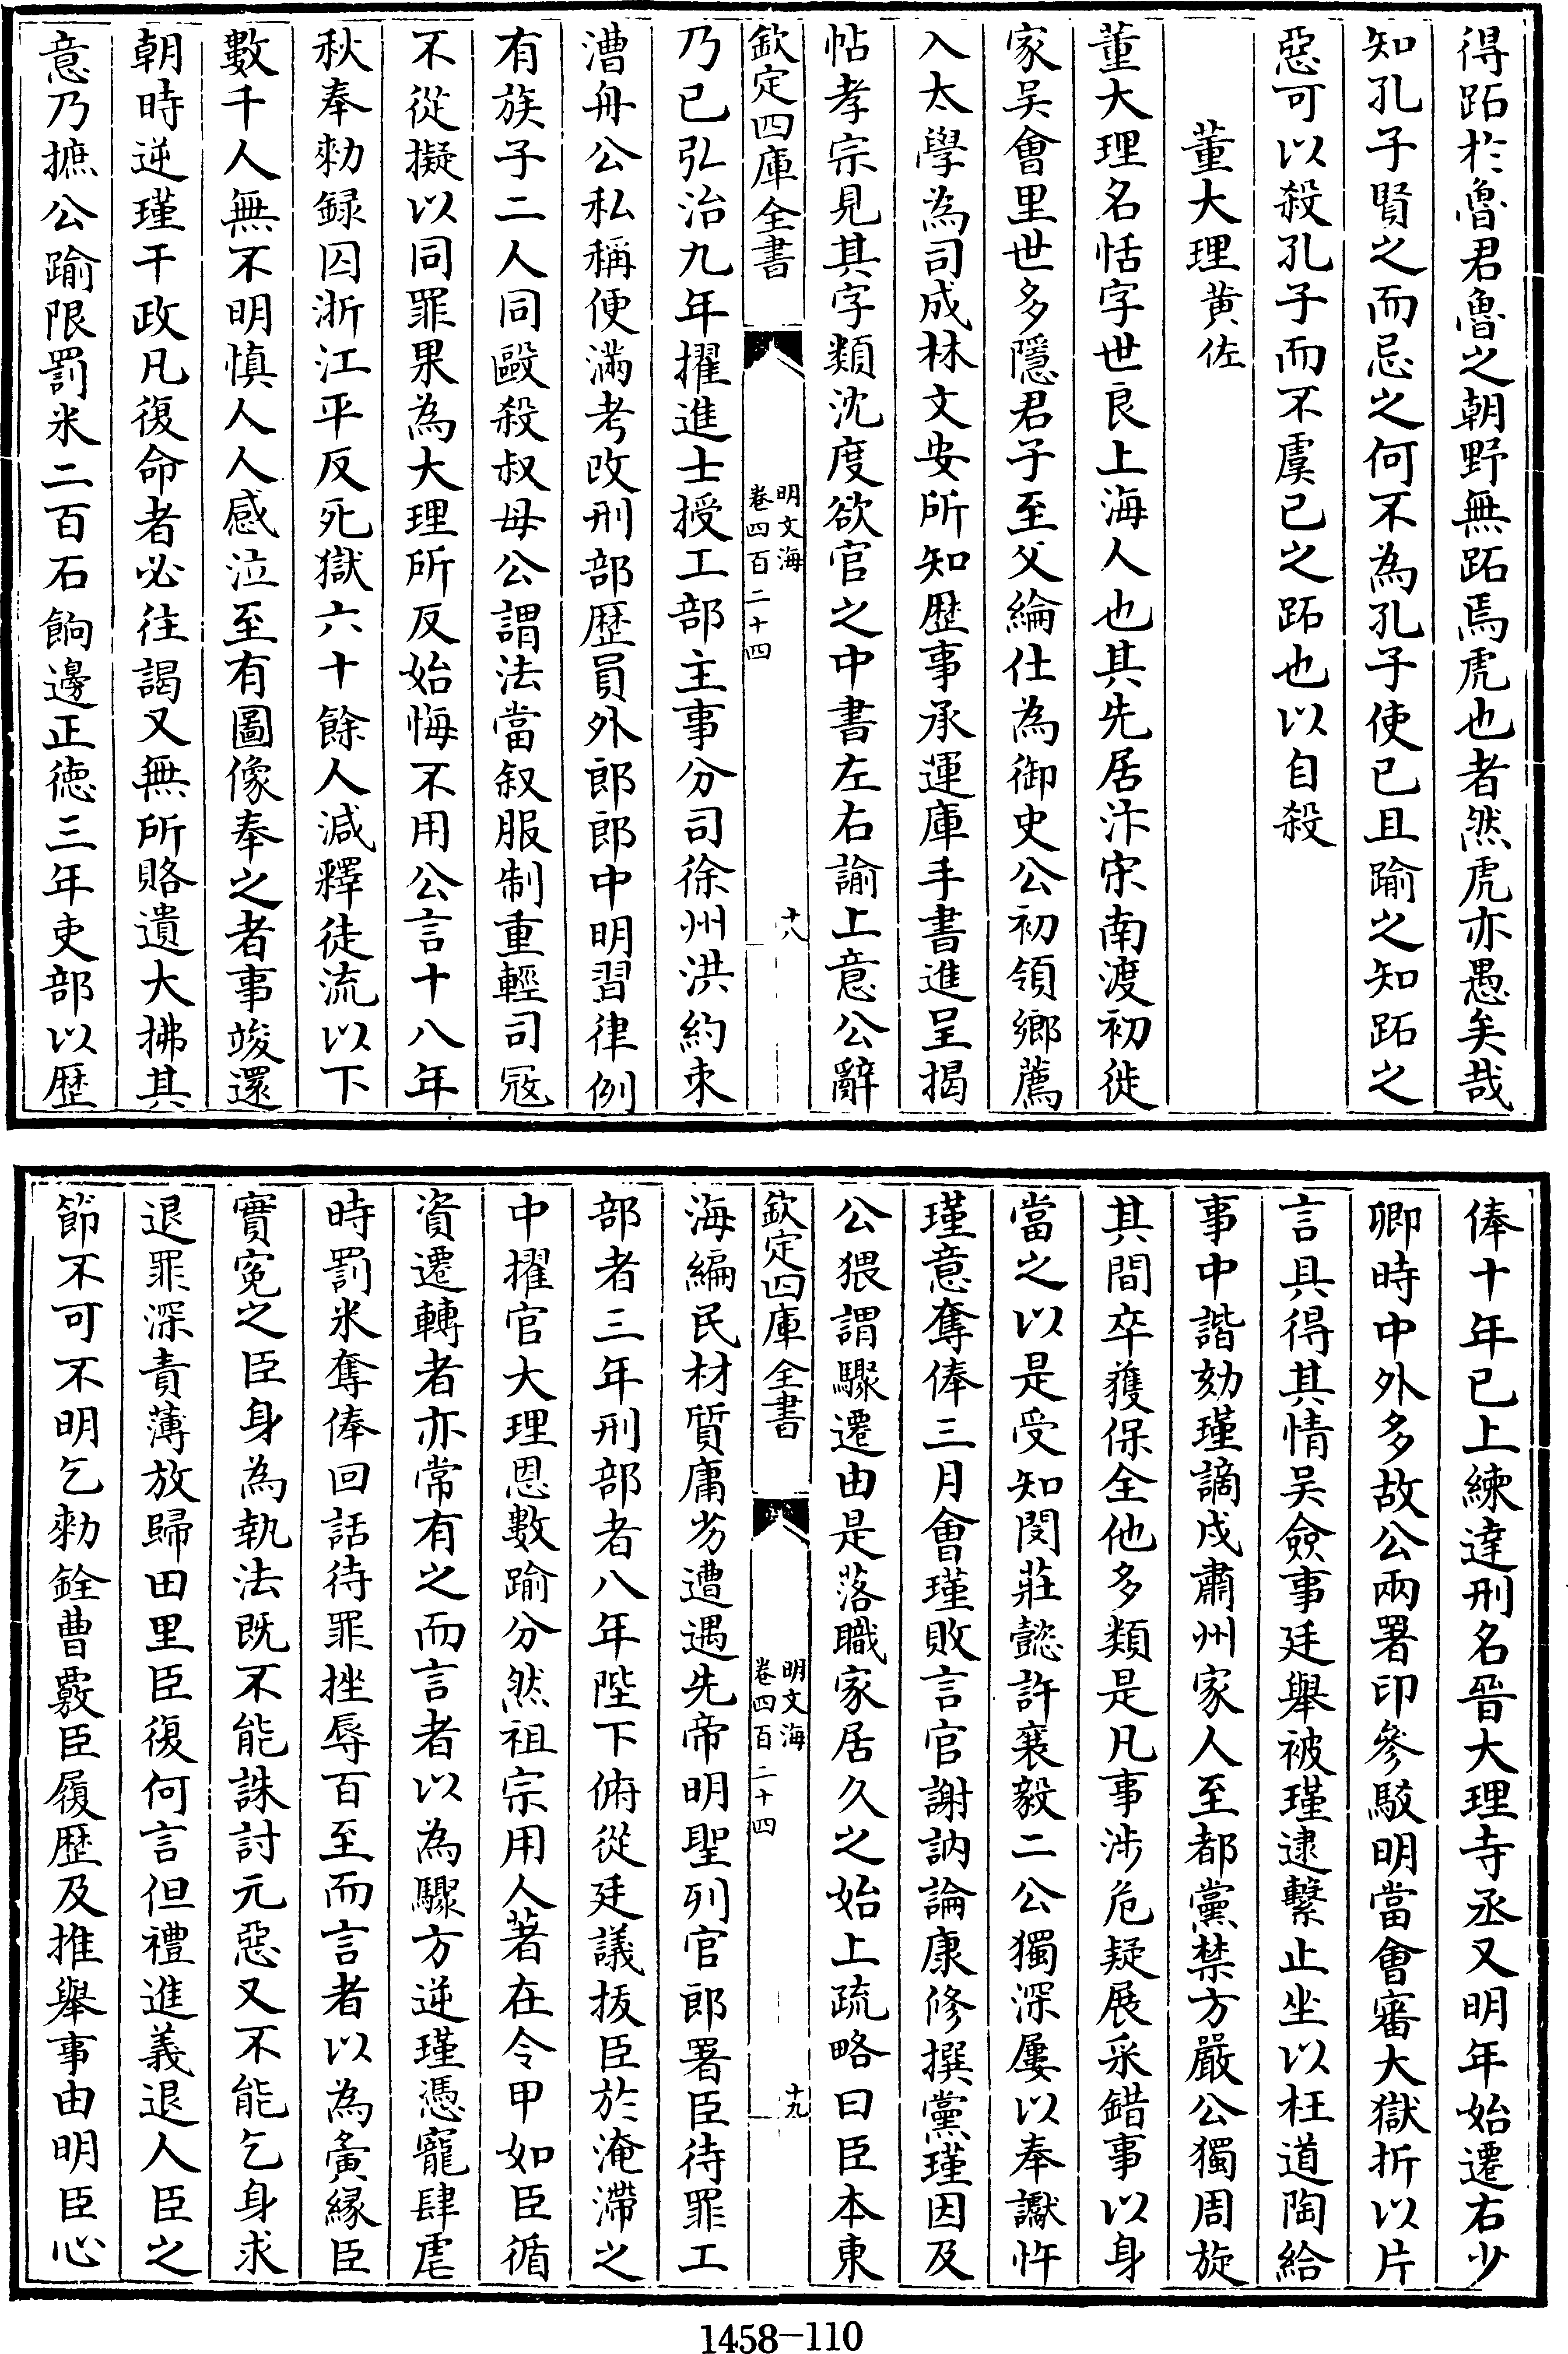 得跖於魯君魯之朝野無跖焉虎也者然虎亦愚矣哉
知孔子賢之而忌之何不為孔子使已且踰之知跖之
惡可以殺孔子而不虞已之跖也以自殺
董大理黄佐
董大理名恬字世良上海人也其先居汴宋南渡初徙
家吴會里世多隱君子至父綸仕為御史公初領鄉薦
入太學為司成林文安所知歴事承運庫手書進呈揭
帖孝宗見其字類沈度欲官之中書左右諭上意公辭
欽定四庫全書
明文海
卷四百二十四
十八
乃已弘治九年擢進士授工部主事分司徐州洪約束
漕舟公私稱便滿考改刑部歴員外郎郎中明習律例
有族子二人同毆殺叔母公謂法當叙服制重輕司冦
不從擬以同罪果為大理所反始悔不用公言十八年
秋奉勑録囚浙江平反死獄六十餘人減釋徒流以下
數千人無不明慎人人感泣至有圖像奉之者事竣還
朝時逆瑾干政凡復命者必往謁又無所賂遺大拂其
意乃摭公踰限罰米二百石餉邊正徳三年吏部以歴
俸十年已上練達刑名晉大理寺丞又明年始遷右少
卿時中外多故公兩署印參駁明當會審大獄折以片
言具得其情吴僉事廷舉被瑾逮繫止坐以枉道陶給
事中諧劾瑾謫戍肅州家人至都黨禁方嚴公獨周旋
其間卒獲保全他多類是凡事涉危疑展采錯事以身
當之以是受知閔莊懿許襄毅二公獨深屢以奉讞忤
瑾意奪俸三月會瑾敗言官謝訥論康修撰黨瑾因及
公猥謂驟遷由是落職家居久之始上疏略曰臣本東
欽定四庫全書
明文海
卷四百二十四
十九
海編民材質庸劣遭遇先帝明聖列官郎署臣待罪工
部者三年刑部者八年陛下俯從廷議㧞臣於淹滯之
中擢官大理恩數踰分然祖宗用人著在令甲如臣循
資遷轉者亦常有之而言者以為驟方逆瑾憑寵肆虐
時罰米奪俸回話待罪挫辱百至而言者以為夤縁臣
實寃之臣身為執法既不能誅討元惡又不能乞身求
退罪深責薄放歸田里臣復何言但禮進義退人臣之
節不可不明乞勑銓曹覈臣履歴及推舉事由明臣心
1458-110